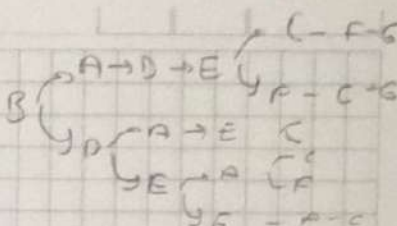 C - F - G
A → D → E
F - C - G
B
D A → E C
C
E A F
F - A - C